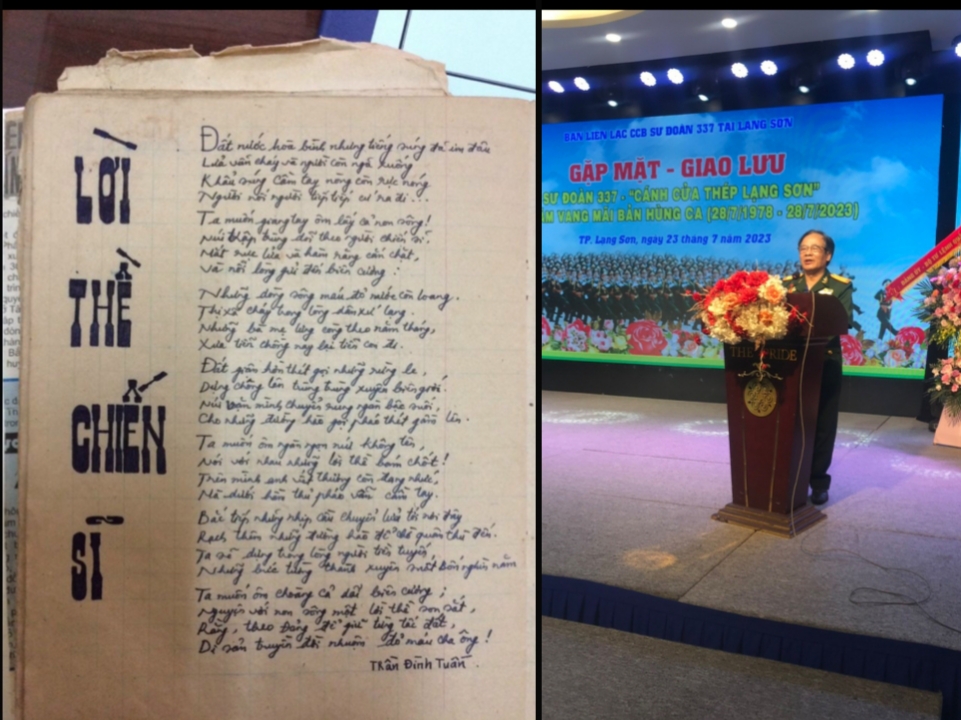 LỜI
THỀ
CHIẾN
SĨ
Đất nước hòa bình nhưng tiếng súng đã im đâu
Lửa vẫn cháy và người còn ngã xuống
Khẩu súng cầm tay nòng còn rực nóng
Người nối người tiếp ra đi...
Ta muốn giang tay ôm lấy cả non sông!
Núi thấp trùng theo người chiến sĩ.
Mắt rực lửa và hàm răng cắn chặt,
Và nỗi lòng giữ đất biên cương.
Những dòng sông máu đỏ nước còn loang.
Thị xã cháy
Những bà mẹ lưng còng theo năm tháng,
Xưa tiễn chồng nay lại tiễn con đi.
Đất giận hờn thét gọi những rừng le,
Dựng chông lên trùng trùng xuyên biên giới.
Núi vặn mình chuyển rung ngàn bộc suối,
Cho những đường hào gọi pháo thét gầm lên.
Ta muốn ôm ngàn ngọn núi không tên,
Nói với nhau những lời thề bỏng chất!
Trên mình anh vết thương còn đang nhức,
Mà dưới hầm thủ pháo vẫn cầm tay.
Bắc tiếp những nhịp cầu chuyển lửa tới nơi đây
Rạch thêm những đường hào để chờ quân thù đến.
Ta sẽ dựng trong lòng người trên tuyến,
Những bức tường thành xuyên suốt bốn nghìn năm
Ta muốn ôm choàng cả đất biên cương;
Nguyện với non sông một lời thề son sắt,
Rằng, theo Đảng để giữ từng tấc đất,
Di sản truyền đời nhuộm đỏ máu cha ông!
Thân Đình Tuấn
BAN LIÊN LẠC CCB SƯ ĐOÀN 337 TẠI LẠNG SƠN
GẶP MẶT - GIAO LƯU
SƯ ĐOÀN 337 - "CÁNH CỬA THÉP LẠNG SƠN"
VANG MÃI BẢN HÙNG CA (28/7/1978 - 28/7/2023)
TP. Lạng Sơn, ngày 23 tháng 7 năm 2023
THE PRIDE